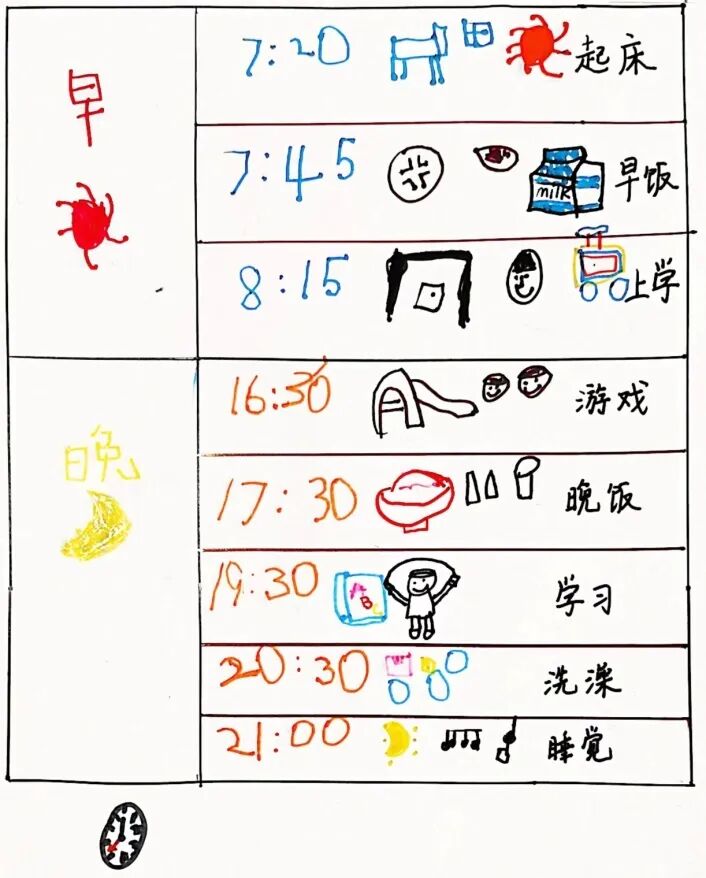 早
7:20 起床
7:45 milk 早饭
8:15 上学
晚
16:30 游戏
17:30 晚饭
19:30 ABC 学习
20:30 洗澡
21:00 睡觉